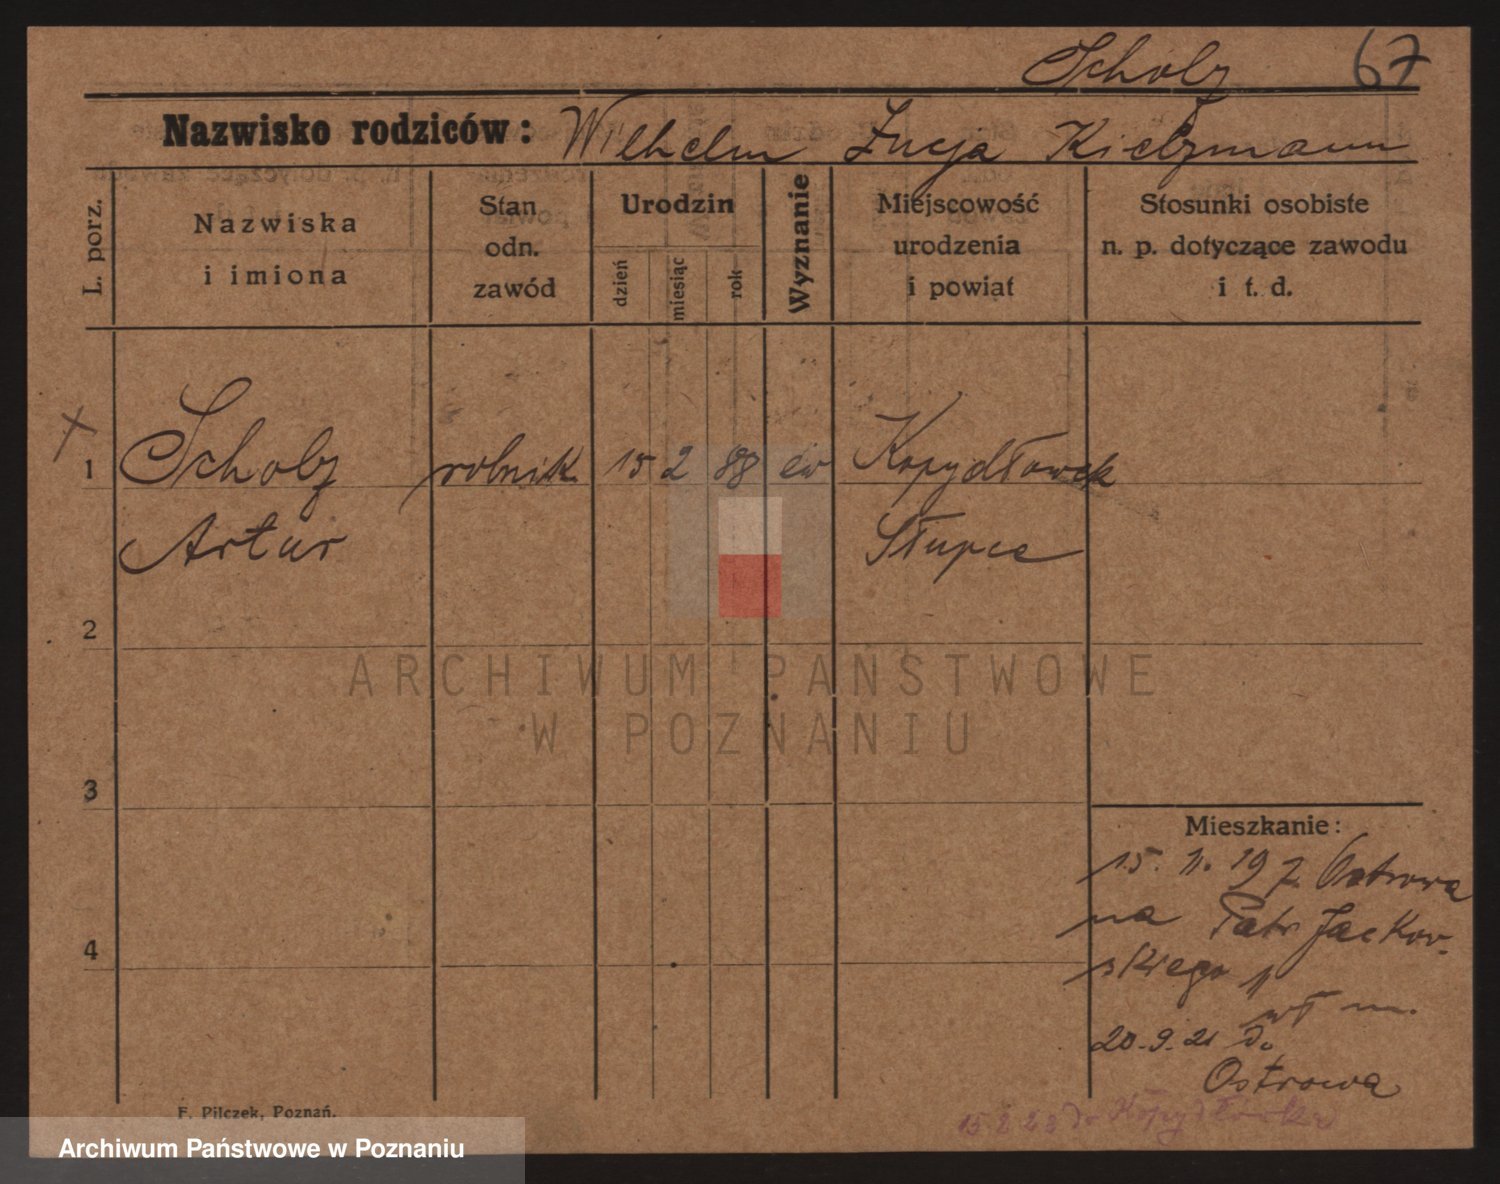 Scholz 67
Nazwisko rodziców: Wilhelm Łucja Kielzmann
L. porz.
Nazwiska
i imiona
Stan
odn.
zawód
Urodzin
dzień
miesiąc
rok
Wyznanie
Miejscowość
urodzenia
i powiat
Stosunki osobiste
n. p. dotyczące zawodu
i t. d.
1 Scholz rolnik 15 2 88 ew Kopydłówek
Artur Słupca
2
ARCHIWUM PAŃSTWOWE
W POZNANIU
3
Mieszkanie:
15. 11. 19 z Ostrowa
na Patr Jackow-
4
skiego 11
wł m.
20. 9. 21 do
Ostrowa
15 8 28 do Kopydłówka
F. Pilczek, Poznań.
Archiwum Państwowe w Poznaniu